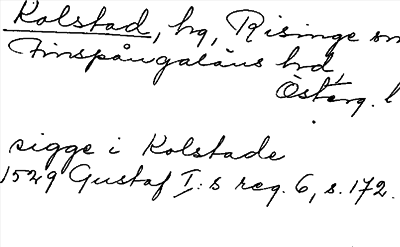 Kolstad, hg, Risinge sn
Finspångaläns hrd
Österg. l
sigge i Kolstade
1529 Gustaf I:s reg. 6, s. 172.